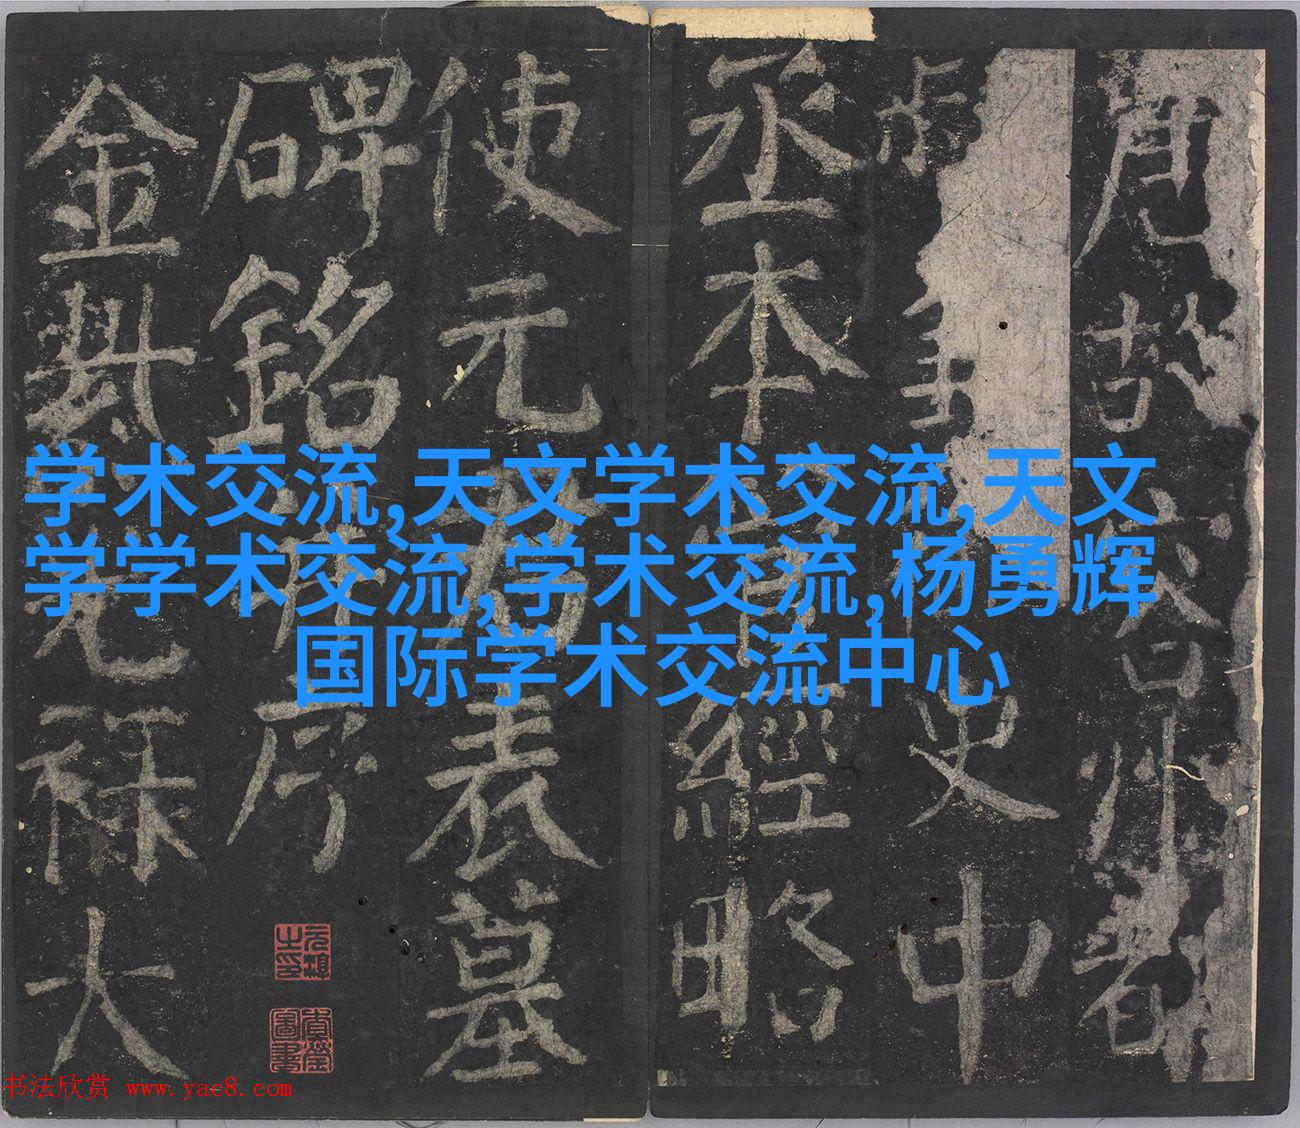 学术交流,天文学术交流,天文
学学术交流,学术交流,杨勇辉
国际学术交流中心
唐故容州都
史中
丞本管經略
使元君表墓
碑銘并序
金紫光祿大
书法欣赏 www.yac8.com